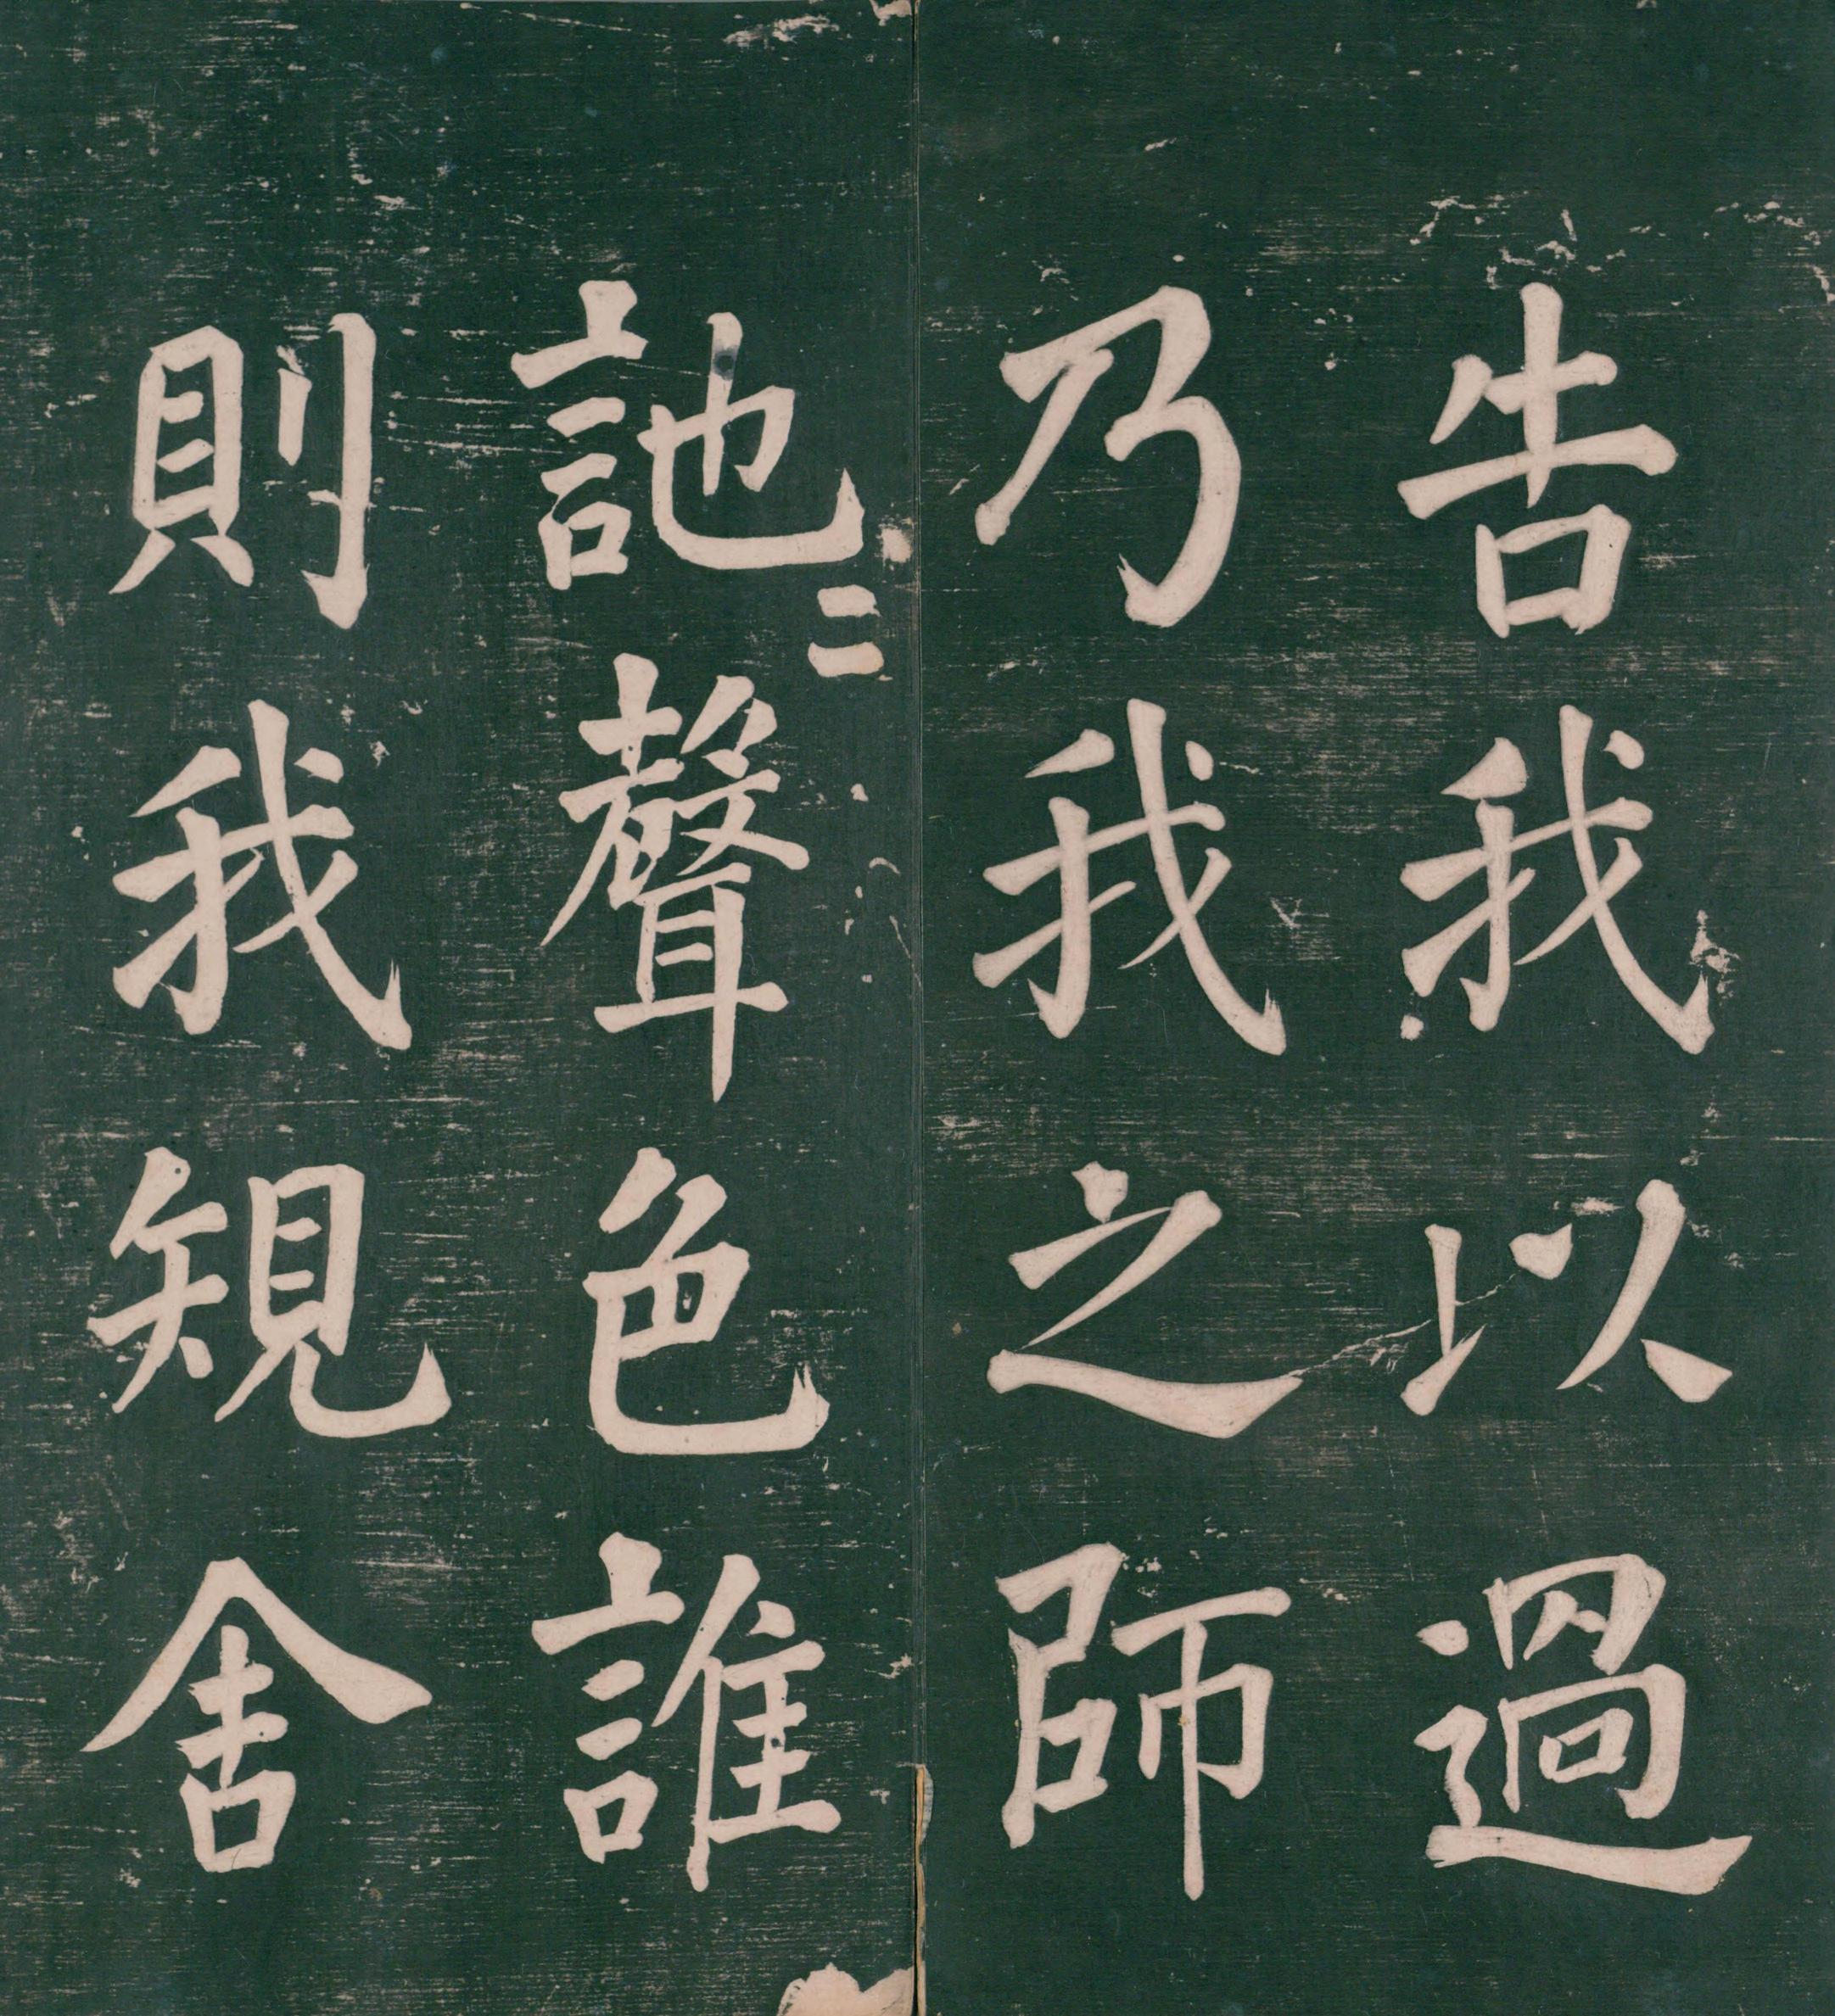 告我以過
乃我之師
訑〻聲色誰
則我䂓舍